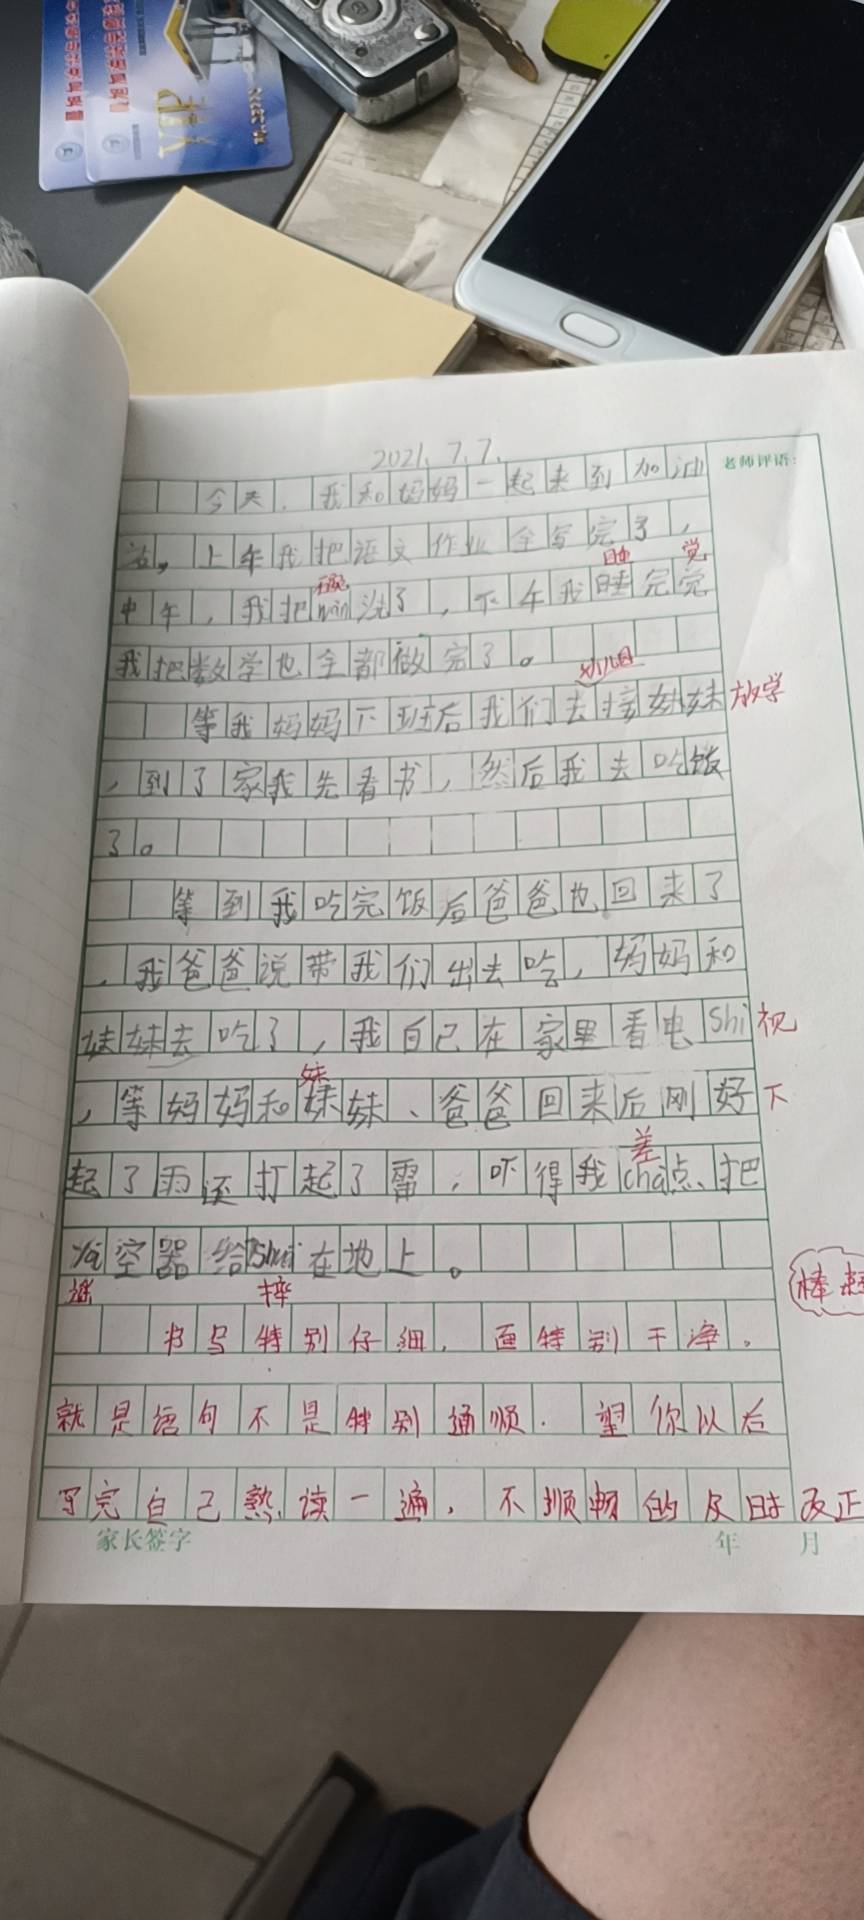 VIP
2021.7.7.
老师评语:
今天,我和妈妈一起来到加油
站,上午我把语文作业全写完了,
睡 觉
中午,我把wǎn洗了,下午我睡完觉
碗
我把数学也全都做完了。
幼儿园
等我妈妈下班后我们去接妹妹 放学
,到了家我先看书,然后我去吃饭
了。
等到我吃完饭后爸爸也回来了
,我爸爸说带我们出去吃,妈妈和
妹妹去吃了,我自己在家里看电shi 视
妹
,等妈妈和妹妹、爸爸回来后刚好 下
差
起了雨还打起了雷,吓得我chà点把
yá空器给shuāi在地上。
摔
棒
书写特别仔细,画特别干净。
就是语句不是特别通顺.望你以后
写完自己熟读一遍,不顺畅的及时改正
家长签字 年 月